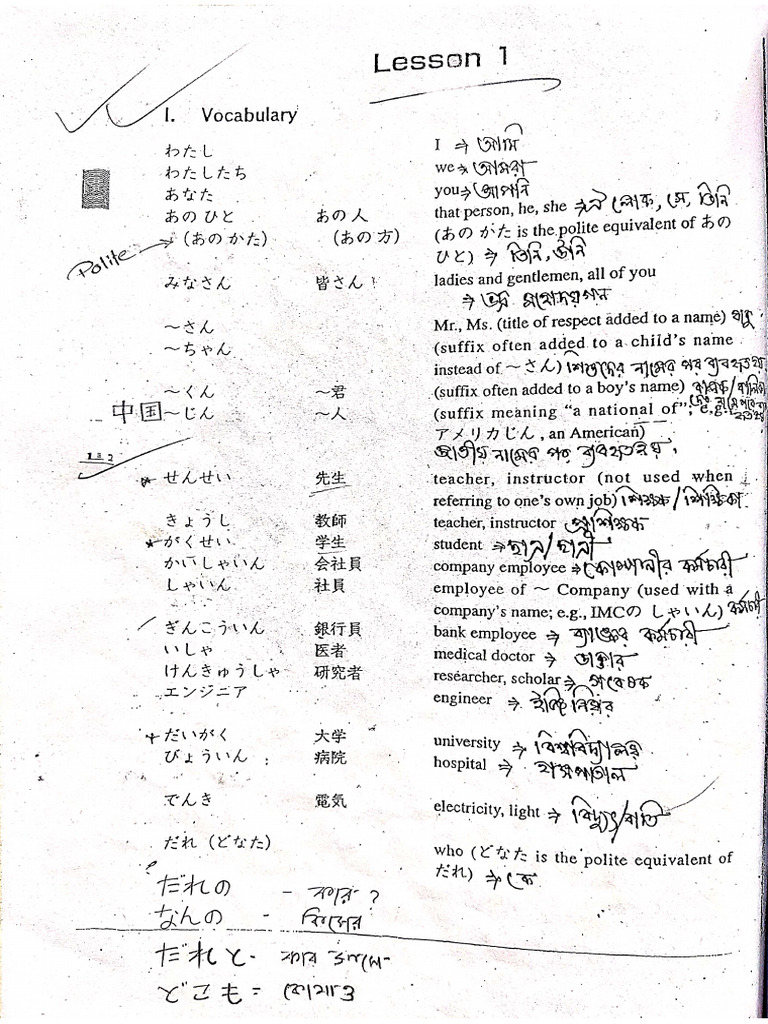 Lesson 1
I. Vocabulary
わたし I ⇒ আমি
わたしたち we ⇒ আমরা
あなた you ⇒ আপনি
あの ひと あの 人 that person, he, she ⇒ ঐ লোক, সে, তিনি
Polite → (あの かた) (あの 方) (あの がた is the polite equivalent of あの
ひと) ⇒ তিনি, উনি
みなさん 皆さん ladies and gentlemen, all of you
⇒ ভদ্র মহোদয়গন
～さん Mr., Ms. (title of respect added to a name)
～ちゃん (suffix often added to a child's name
instead of ～さん) শিশুদের নামের পর ব্যবহৃত হয়
～くん ～君 (suffix often added to a boy's name)
中国 ～じん ～人 (suffix meaning "a national of"; e.g.,
アメリカじん, an American)
জাতীয় নামের পর ব্যবহৃত হয়,
せんせい 先生 teacher, instructor (not used when
referring to one's own job) শিক্ষক/শিক্ষিকা
きょうし 教師 teacher, instructor প্রশিক্ষক
がくせい 学生 student ⇒ ছাত্র/ছাত্রী
かいしゃいん 会社員 company employee ⇒ কোম্পানীর কর্মচারী
しゃいん 社員 employee of ～ Company (used with a
company's name; e.g., IMCの しゃいん) কর্মচারী
ぎんこういん 銀行員 bank employee ⇒ ব্যাংকের কর্মচারী
いしゃ 医者 medical doctor ⇒ ডাক্তার
けんきゅうしゃ 研究者 researcher, scholar ⇒ গবেষক
エンジニア engineer ⇒ ইঞ্জিনিয়ার
だいがく 大学 university ⇒ বিশ্ববিদ্যালয়
びょういん 病院 hospital ⇒ হাসপাতাল
でんき 電気 electricity, light ⇒ বিদ্যুৎ/বাতি
だれ (どなた) who (どなた is the polite equivalent of
だれ) ⇒ কে
だれの - কার ?
なんの - কিসের
だれと - কার সাথে -
どこも = কোথাও